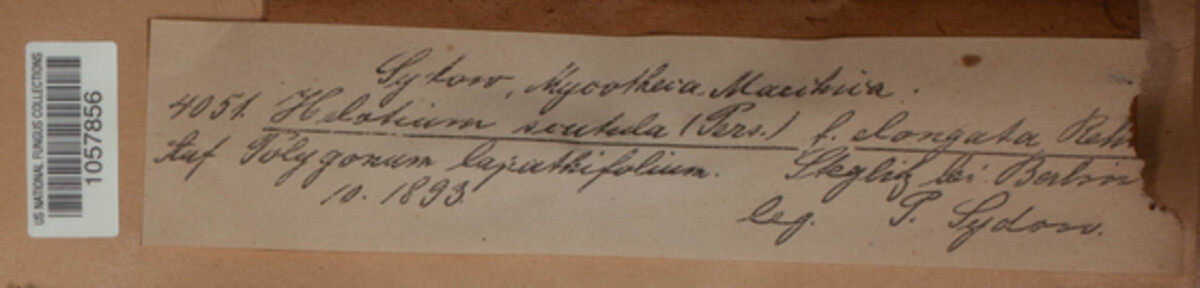 US NATIONAL FUNGUS COLLECTIONS
1057856
Sydow, Mycotheca Marchica.
4051. Helotium scutula (Pers.) f. elongata Reh
Auf Polygonum lapathifolium. Steglitz bei Berlin
10. 1893. leg. P. Sydow.